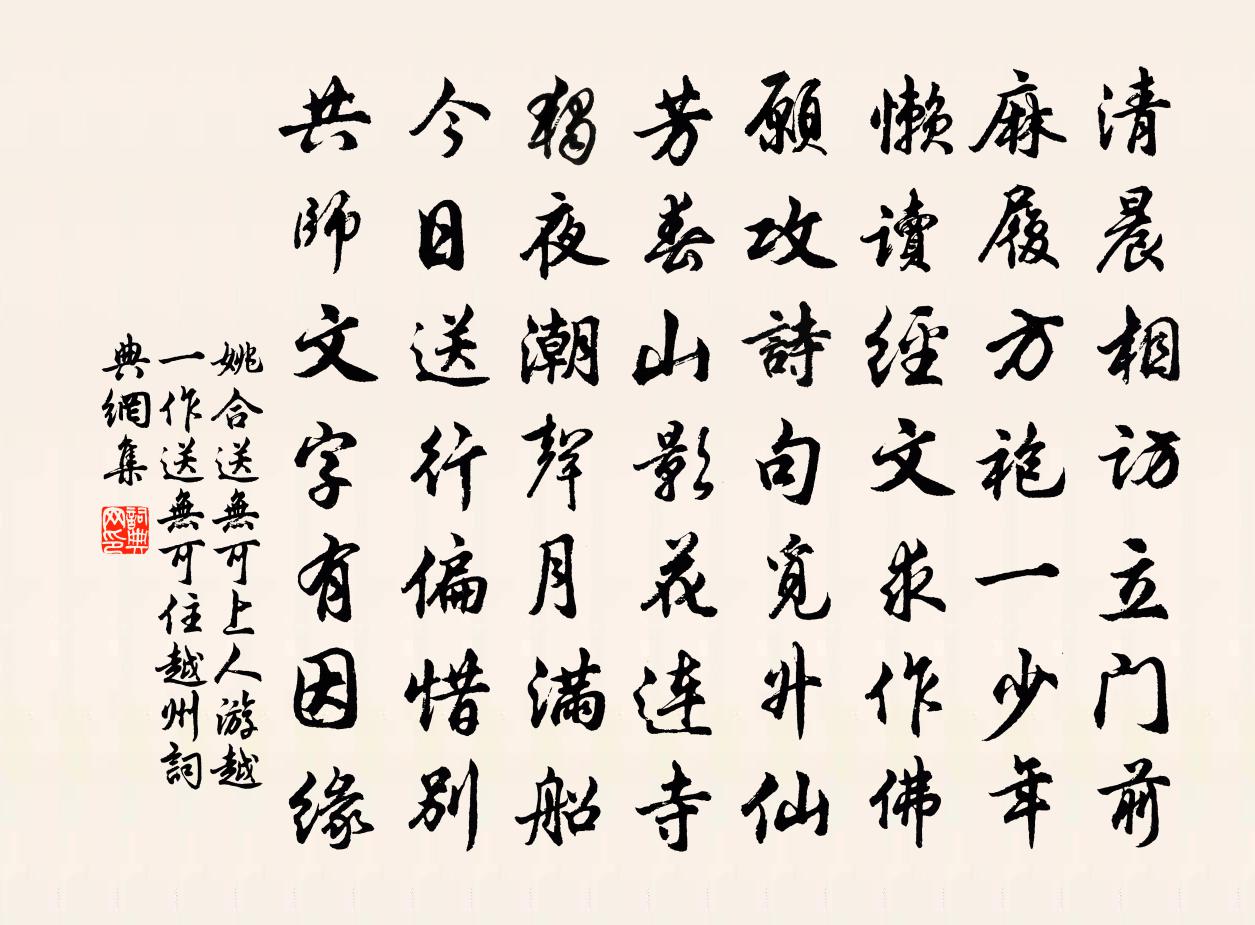 清晨相訪立门前
麻履方袍一少年
懒讀經文求作佛
願攻詩句覓升仙
芳春山影花连寺
獨夜潮聲月满船
今日送行偏惜别
共師文字有因緣
姚合送無可上人游越
一作送無可住越州詞
典網集
詞典
网印